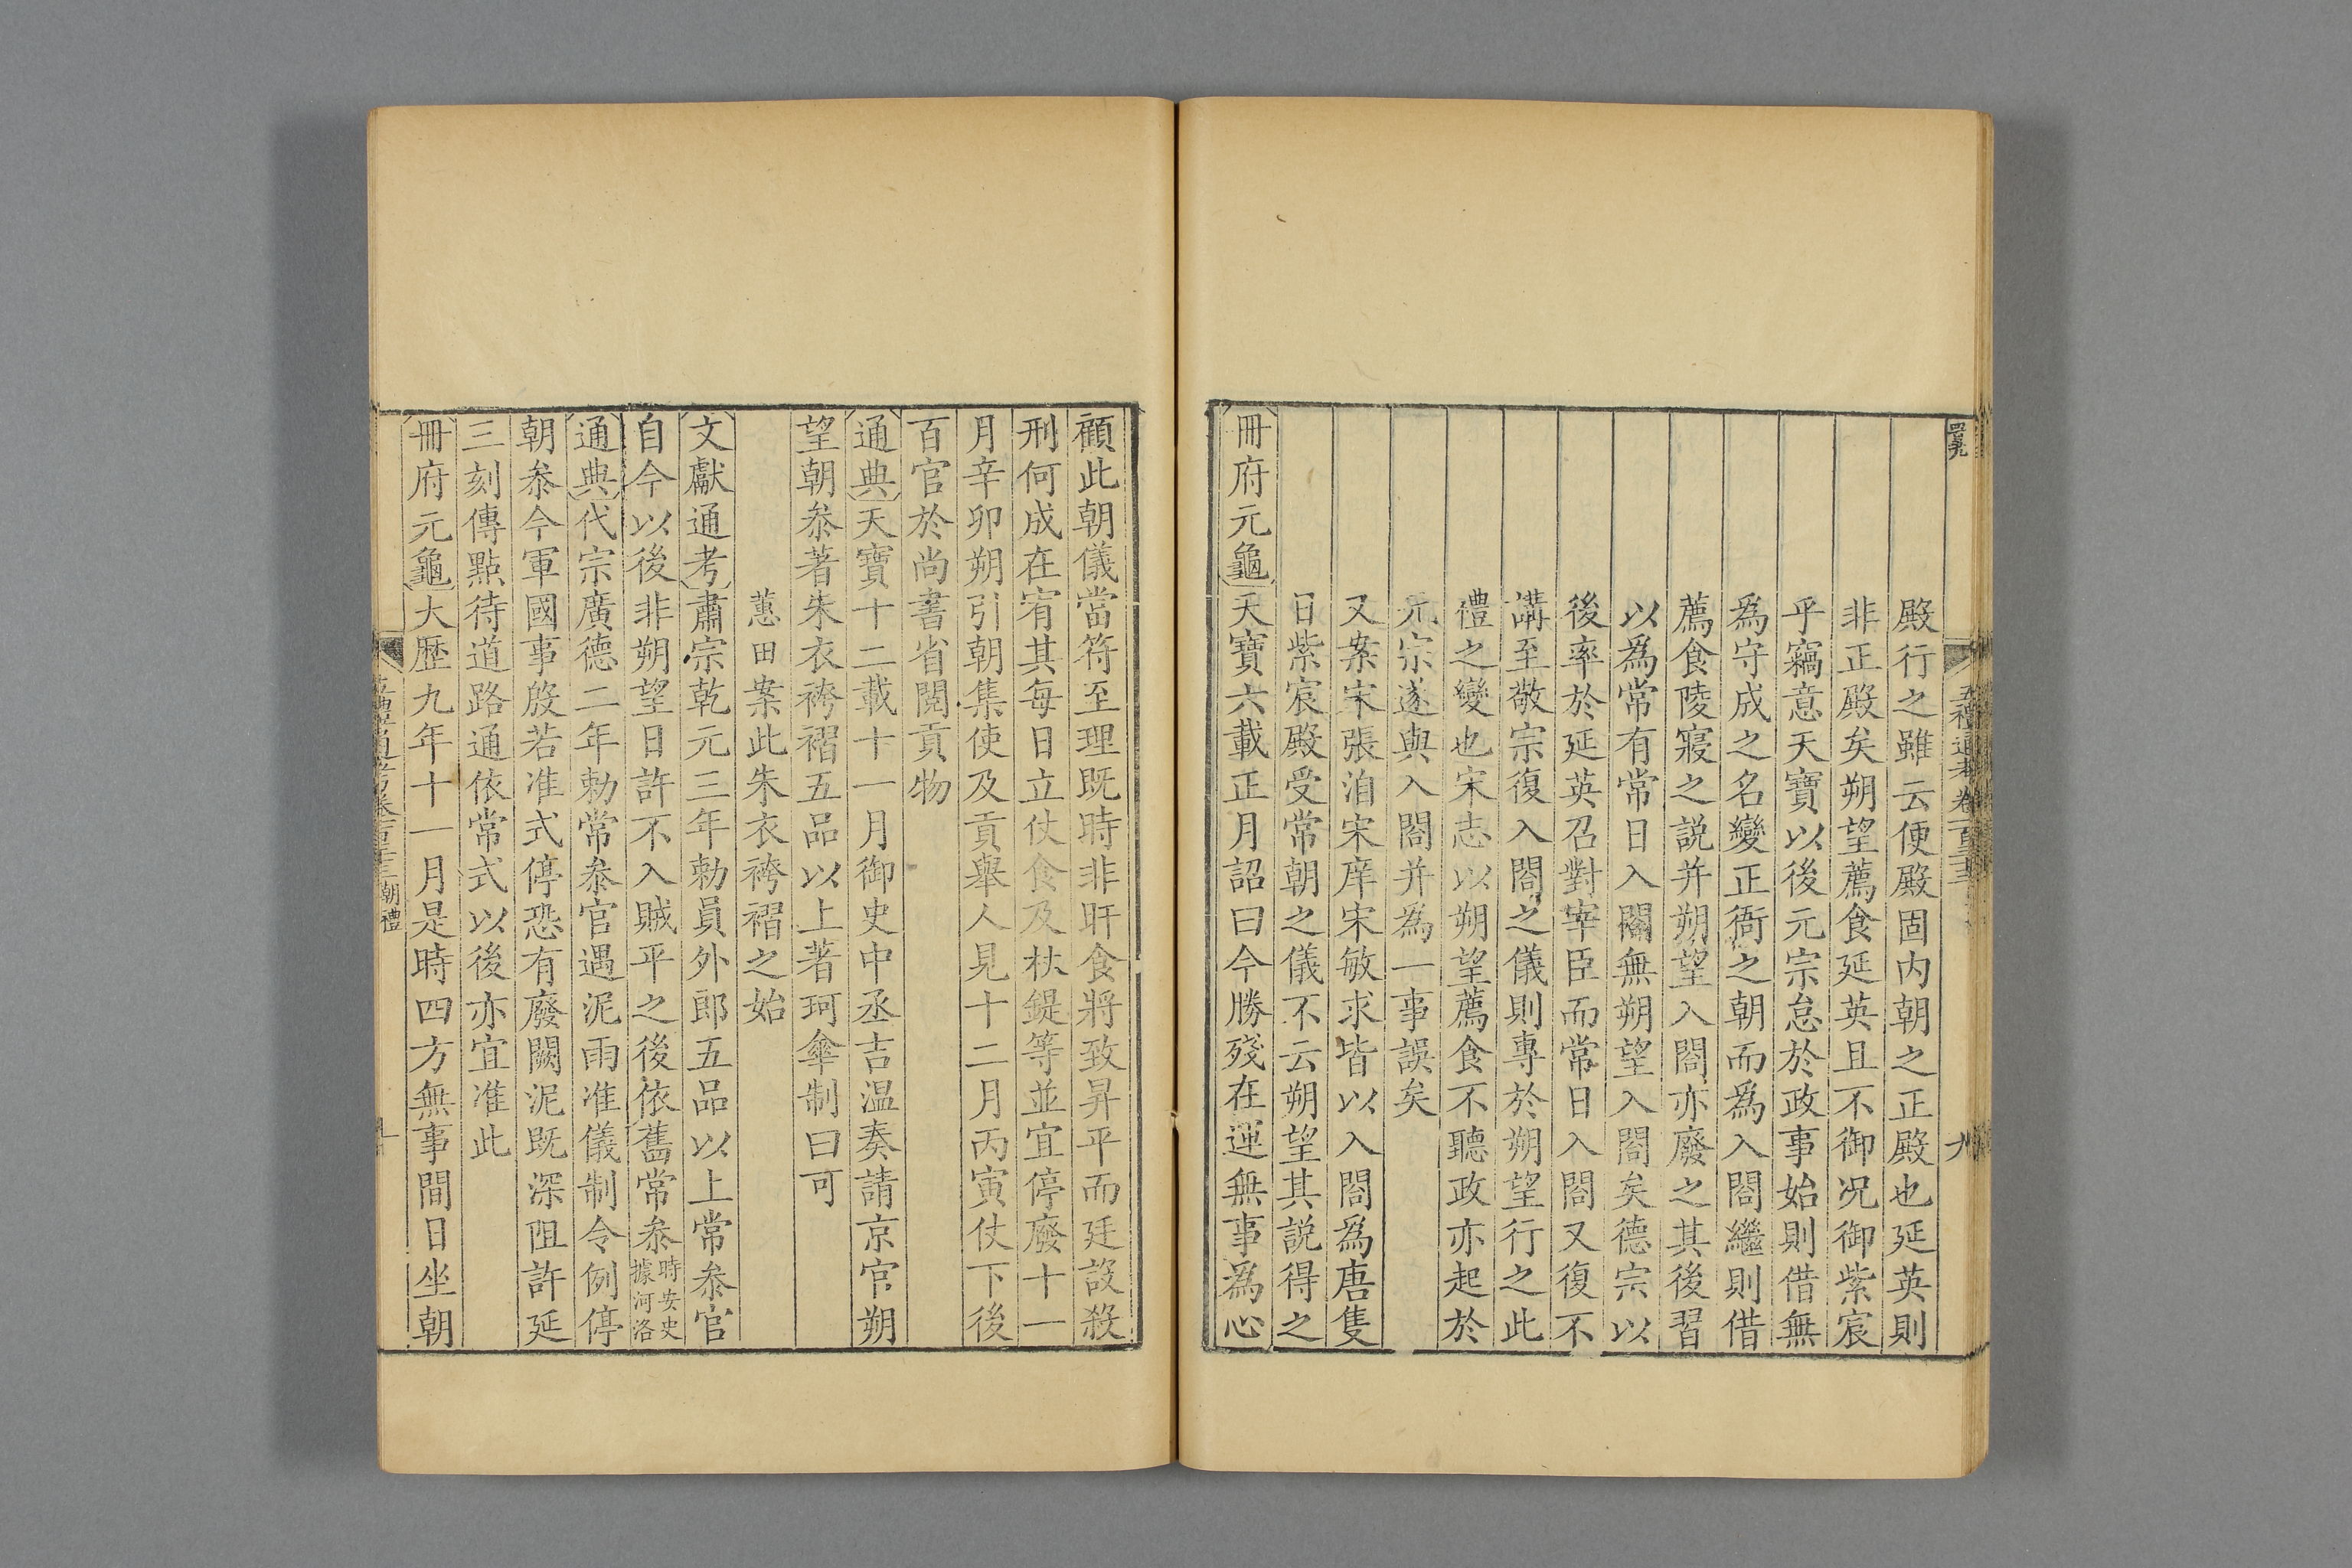 殿行之雖云便殿固内朝之正殿也延英則
非正殿矣朔望薦食延英且不御况御紫宸
乎竊意天寶以後元宗怠於政事始則借無
爲守成之名變正衙之朝而爲入閤繼則借
薦食陵寢之説并朔望入閤亦廢之其後習
以爲常有常日入閤無朔望入閤矣德宗以
後率於延英召對宰臣而常日入閤又復不
講至敬宗復入閤之儀則專於朔望行之此
禮之變也宋志以朔望薦食不聽政亦起於
元宗遂與入閤并為一事誤矣
又案宋張洎宋庠宋敏求皆以入閤爲唐隻
日紫宸殿受常朝之儀不云朔望其説得之
冊府元龜天寶六載正月詔曰今勝殘在運無事爲心
顧此朝儀當符至理既時非旰食將致昇平而廷設殺
刑何成在宥其每日立仗食及杖鍉等並宜停廢十一
月辛卯朔引朝集使及貢舉人見十二月丙寅仗下後
百官於尚書省閱貢物
通典天寶十二載十一月御史中丞吉温奏請京官朔
望朝叅著朱衣袴褶五品以上著珂傘制曰可
蕙田案此朱衣袴褶之始
文獻通考肅宗乾元三年勅員外郎五品以上常叅官
自今以後非朔望日許不入賊平之後依舊常叅時安史據河洛
通典代宗廣德二年勅常叅官遇泥雨准儀制令例停
朝叅今軍國事殷若准式停恐有廢闕泥既深阻許延
三刻傳點待道路通依常式以後亦宜准此
冊府元龜大歷九年十一月是時四方無事間日坐朝